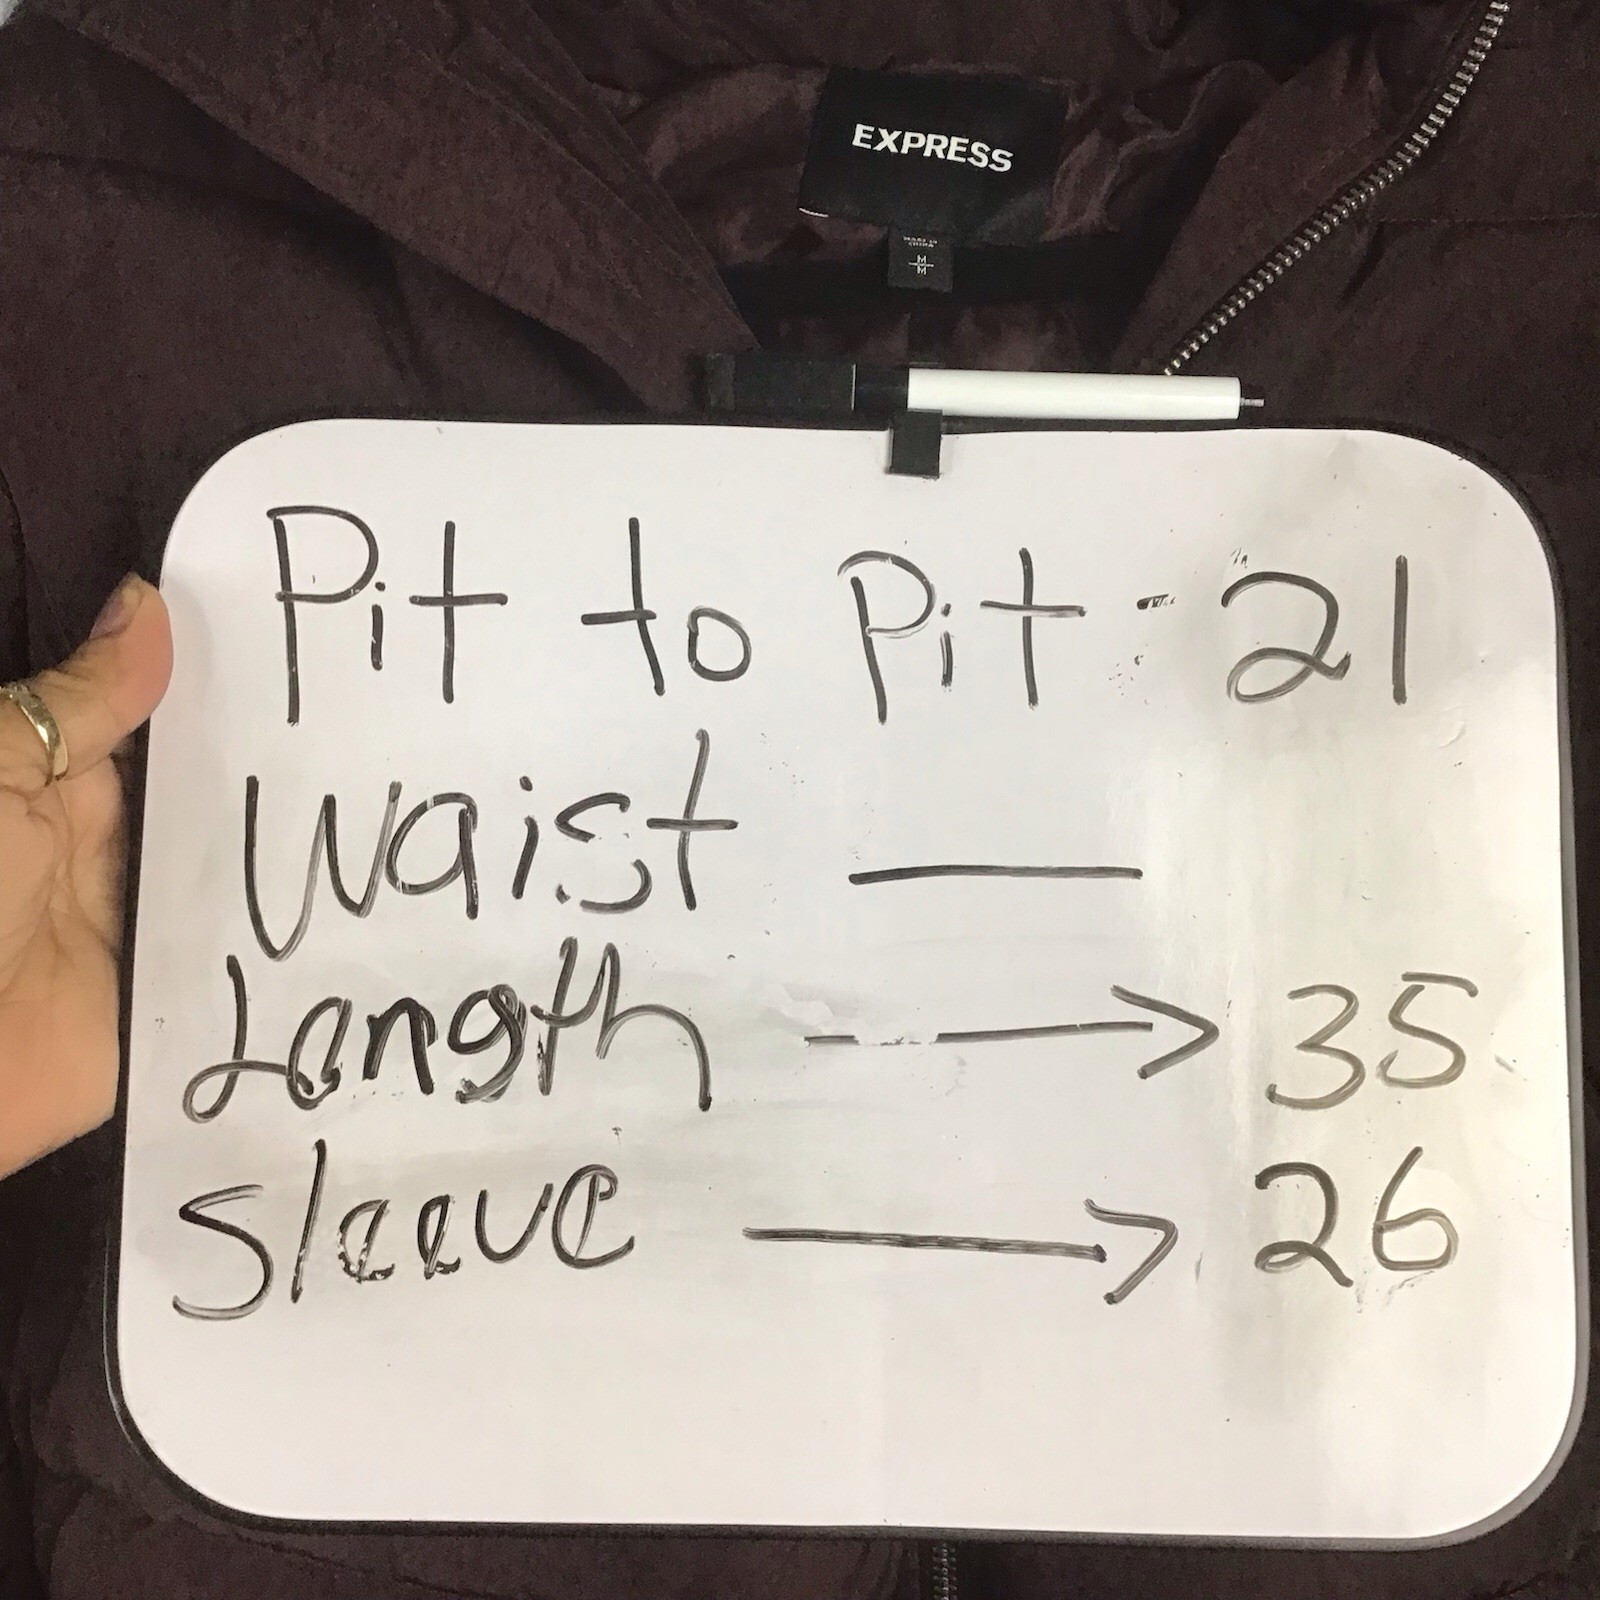 EXPRESS
MADE IN
CHINA
M
M
Pit to Pit - 21
Waist —
Length ---> 35
Sleeve —> 26